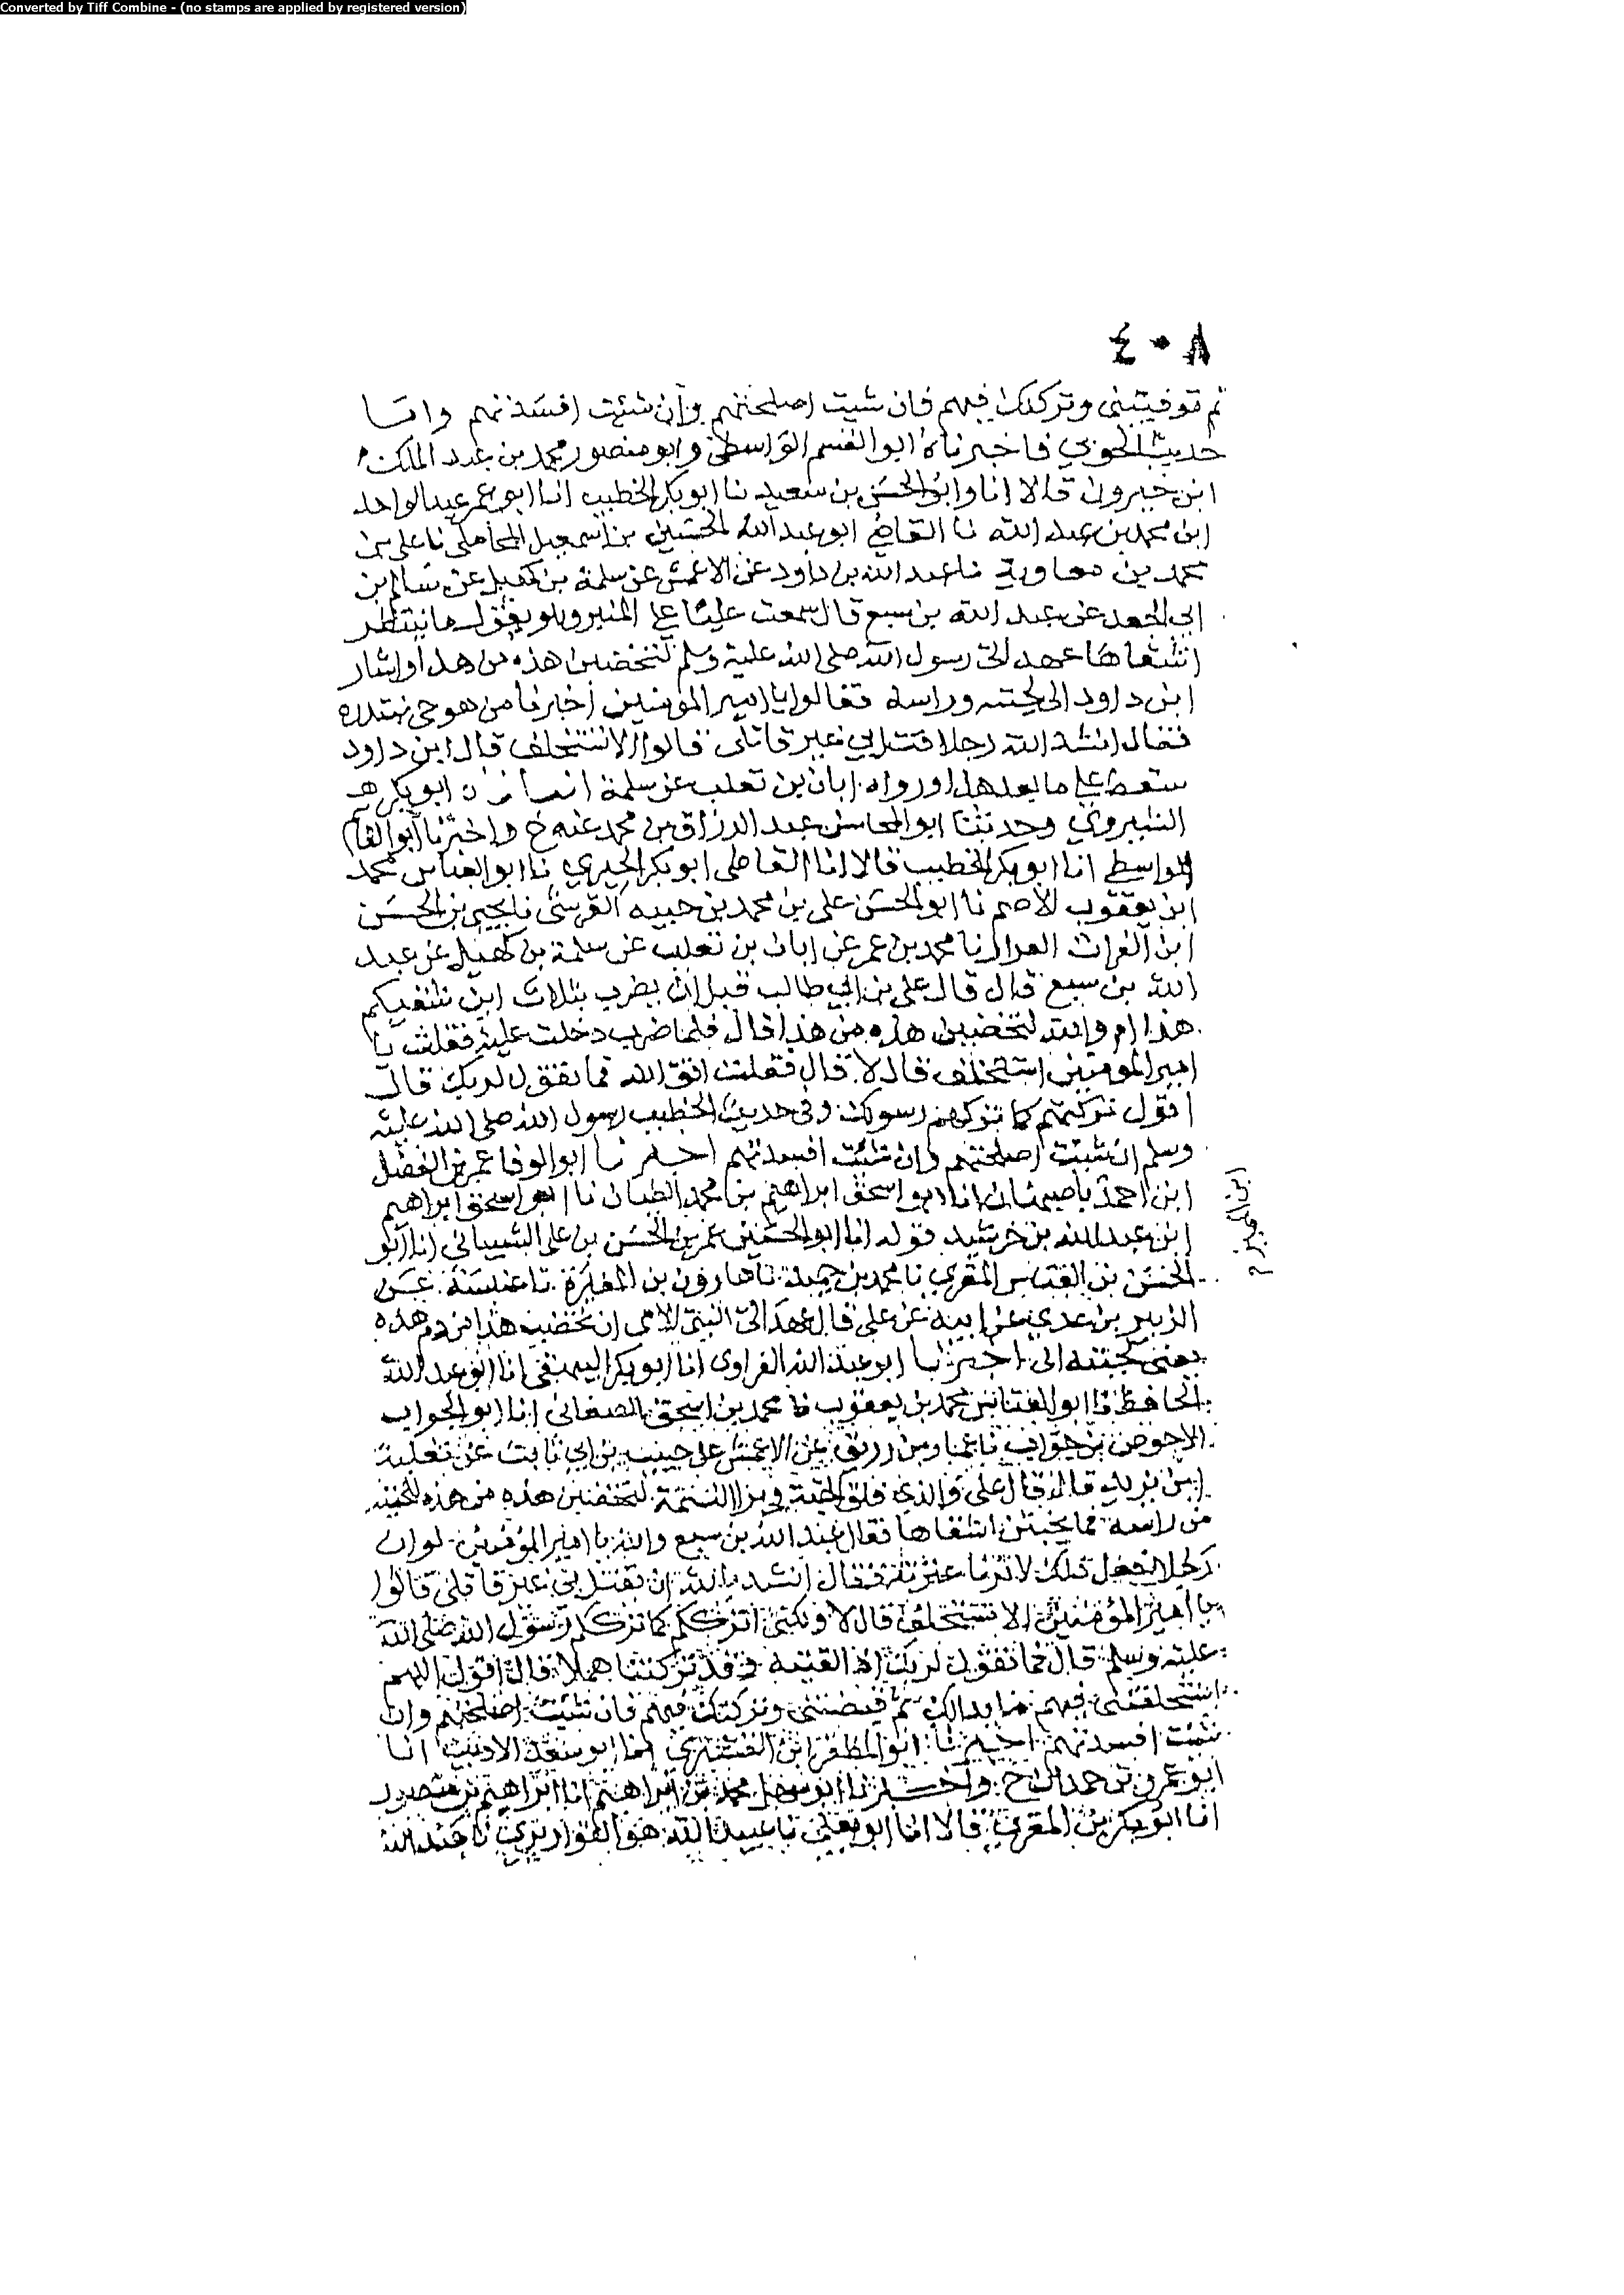 Converted by Tiff Combine - (no stamps are applied by registered version)
٤٠٨
ثم توفيتيني وتركتك فيهم فان شيت اصلحتهم وان شئت افسدتهم واما
حديث الخوبي فاخبرناه ابو القسم الواسطي وابو منصور محمد بن عبد الملك
ابن خيرون قالا انا وابو الحسن بن سعيد نا ابو بكر الخطيب انا ابو عمر عبد الواحد
ابن محمد بن عبد الله نا القاضي ابو عبد الله الحسين بن اسمعيل المحاملي نا علي بن
محمد بن معاوية نا عبد الله بن داود عن الاعمش عن سلمة بن كهيل عن سالم بن
ابي الجعد عن عبد الله بن سبع قال سمعت عليا على المنبر وهو يقول ما ينتظر
اشقاها عهد الي رسول الله صلى الله عليه وسلم لتخضبن هذه من هذا واشار
ابن داود الى لحيته وراسه فقالوا يا امير المومنين اخبرنا من هو حتى نبتدره
فقال انشد الله رجلا قتل بي غير قاتلي قالوا الا تستخلف قال ابن داود
سقط علي ما بعد هذا ورواه ابان بن تغلب عن سلمة ابو بكر
الشيروي وحدثنا ابو المحاسن عبد الرزاق بن محمد عنه ح واخبرنا ابو القاسم
الواسطي انا ابو بكر الخطيب قالا انا القاضي ابو بكر الحيري نا ابو العباس محمد
ابن يعقوب الاصم نا ابو الحسن علي بن محمد بن حبيبه القرشي نا يحيى بن الحسن
ابن الفرات نا محمد بن عمر عن ابان بن تغلب عن سلمة بن كهيل عن عبد
الله بن سبع قال قال علي بن ابي طالب قبل ان يضرب بثلاث اين شقيكم
هذا ام والله لتخضبن هذه من هذا قال فلما ضرب دخلت عليه فقلت يا
امير المومنين استخلف قال لا قال فقلت اتق الله فما تقول لربك قال
اقول تركتهم كما تركهم رسولك وفي حديث الخطيب رسول الله صلى الله عليه
وسلم ان شيت اصلحتهم وان شئت افسدتهم اخبرنا ابو الوفا عمر بن الفضل
ابن احمد باصبهان انا ابو اسحق ابراهيم بن محمد الطيان نا ابو اسحق ابراهيم
ابن عبد الله بن خرشيد قوله انا ابو الحسين عمر بن الحسن بن علي الشيباني انا ابو
الحسن بن العباس المقري نا محمد بن حميد نا هارون بن المغيرة نا عنبسة عن
الزبير بن عدي عن ابيه عن علي قال عهد الي النبي الامي ان تخضب هذا من دم هذه
يعني لحيته الى اخبرنا ابو عبد الله الفراوى انا ابو بكر البيهقي انا ابو عبد الله
الحافظ نا ابو العباس محمد بن يعقوب نا محمد بن اسحق الصغاني انا ابو الجواب
الاحوص بن جواب نا عمار بن رزيق عن الاعمش عن حبيب بن ابي ثابت عن ثعلبة
ابن يزيد قال قال علي والذي فلق الحبة وبرا النسمة لتخضبن هذه من هذه للحيته
من راسه فما يحبس اشقاها فقال عبد الله بن سبع والله يا امير المؤمنين لو ان
رجلا فعل ذلك لابرنا عترته فقال انشد بالله ان يقتل بي غير قاتلي قالوا
يا امير المؤمنين الا تستخلف قال لا ولكني اترككم كما ترككم رسول الله صلى الله
عليه وسلم قال فما تقول لربك اذا لقيته وقد تركتنا هملا قال اقول اللهم
استخلفتني فيهم ما بدا لك ثم قبضتني وتركتك فيهم فان شئت اصلحتهم وان
شئت افسدتهم اخبرنا ابو المظفر ابن القشيري انا ابو سعد الاديب انا
ابو عمرو بن حمدان ح واخبرنا ابو سهل محمد بن ابراهيم انا ابراهيم بن منصور
انا ابو بكر بن المقري قالا انا ابو يعلى نا عبيد الله هو القواريري نا عبد الله